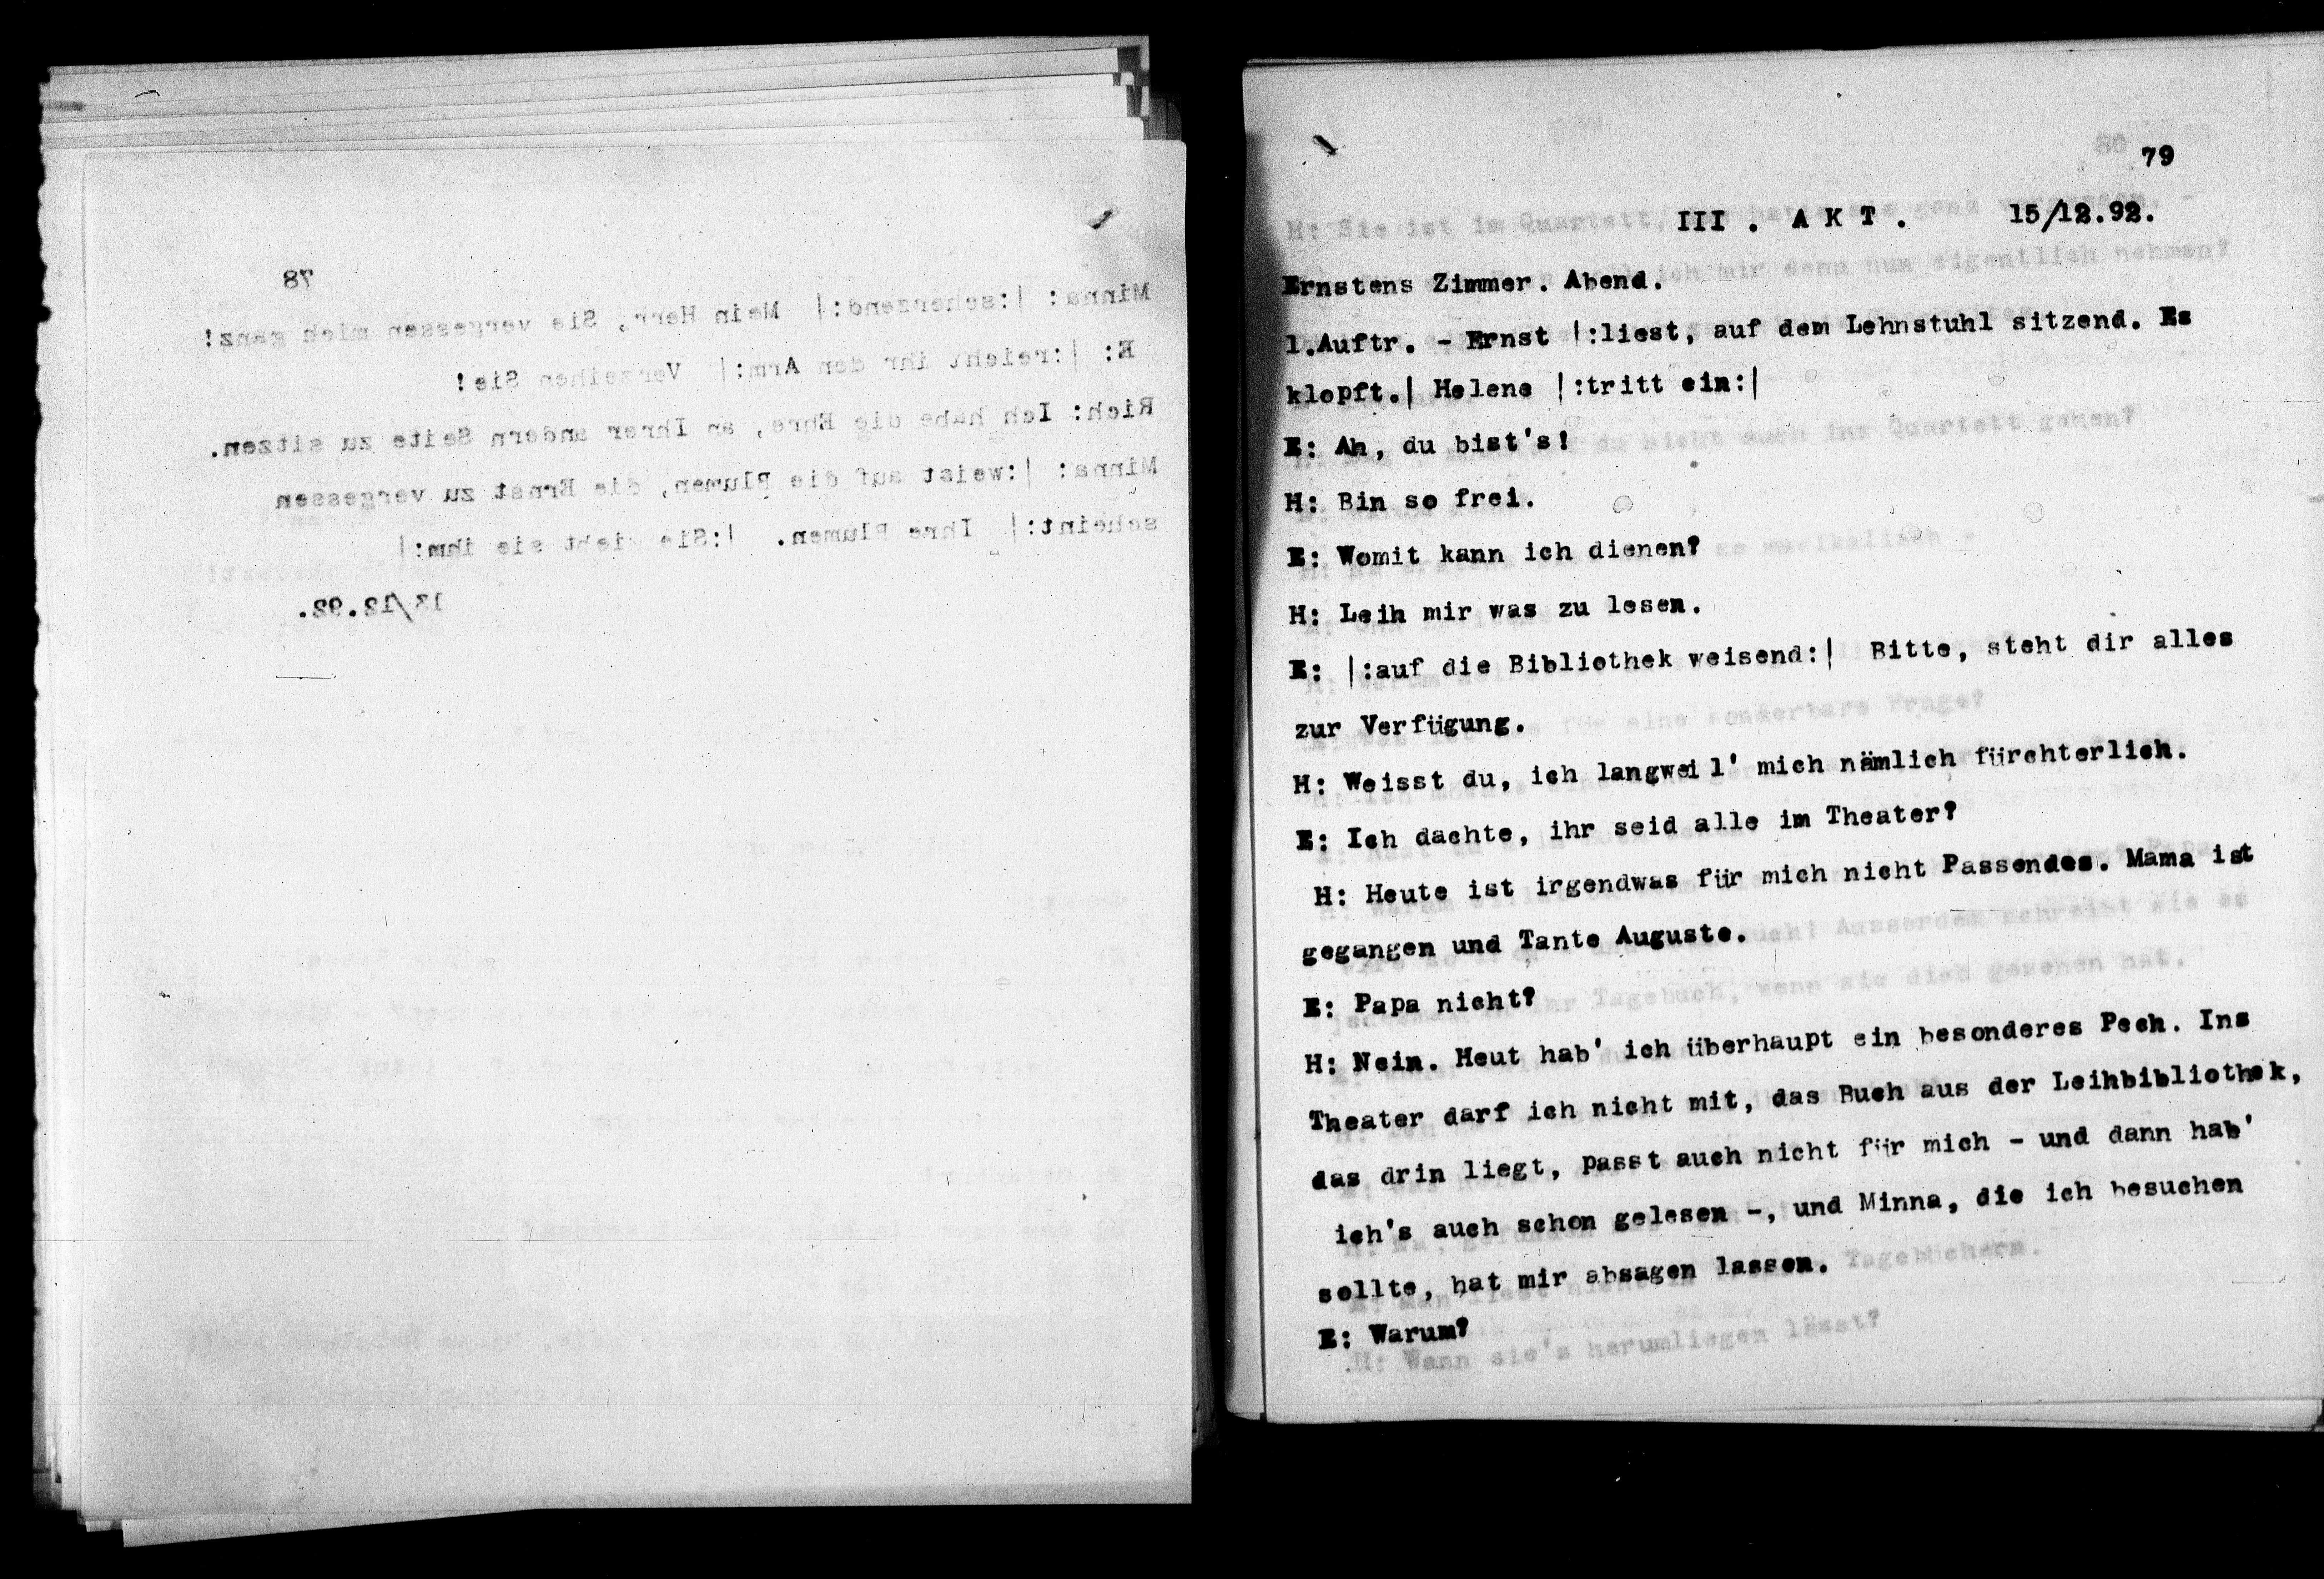 78
Minna: |:scherzend:| Mein Herr, Sie vergessen mich ganz!
E: |:reicht ihr den Arm:| Verzeihen Sie!
Rich: Ich habe die Ehre, an Ihrer andern Seite zu sitzen.
Minna: |:weist auf die Blumen, die Ernst zu vergessen
scheint:| Ihre Blumen. |:Sie gieht sie ihm:|
13/12.92.
79
III . A K T . 15/12.92.
Ernstens Zimmer. Abend.
1.Auftr. - Ernst |:liest, auf dem Lehnstuhl sitzend. Es
klopft.| Helene |:tritt ein:|
E: Ah, du bist's!
H: Bin so frei.
E: Womit kann ich dienen?
H: Leih mir was zu lesen.
E: |:auf die Bibliothek weisend:| Bitte, steht dir alles
zur Verfügung.
H: Weisst du, ich langweil' mich nämlich fürchterlich.
E: Ich dachte, ihr seid alle im Theater?
H: Heute ist irgendwas für mich nicht Passendes. Mama ist
gegangen und Tante Auguste.
E: Papa nicht?
H: Nein. Heut hab' ich überhaupt ein besonderes Pech. Ins
Theater darf ich nicht mit, das Buch aus der Leihbibliothek,
das drin liegt, passt auch nicht für mich - und dann hab'
ich's auch schon gelesen -, und Minna, die ich besuchen
sollte, hat mir absagen lassen.
E: Warum?